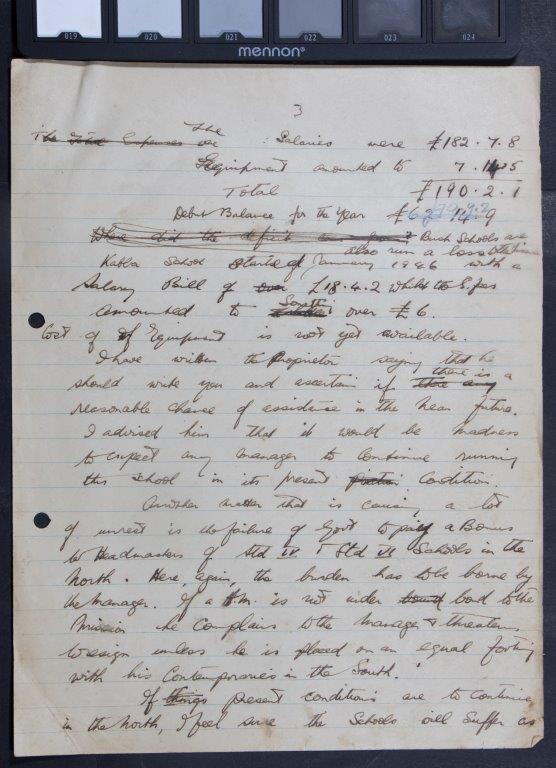 019 020 021 022 023 024
mennon
3
The Total Expenses The Salaries were £182.7.8
Equipment amounted to 7.14.5
Total £190.2.1
Debit Balance for the Year £62 14.9
Where did the deficit come from? Bush Schools
also run a loss
Kabba School started January 1946 with a
Salary Bill of over £18.4.2 whilst the S. fees
amounted to South over £6.
Cost of Equipment is not yet available.
I have written the Proprietor saying that he
should write you and ascertain if there any there is a
reasonable chance of assistance in the near future.
I advised him that it would be madness
to expect any manager to continue running
this school in its present condition.
Another matter that is causing a lot
of unrest is the failure of Govt to pay a Bonus
to Headmasters of Std IV & Std VI Schools in the
North. Here, again, the burden has to be borne by
the manager. If a H.M. is not under bond to the
Mission he complains to the manager & threatens
to resign unless he is placed on an equal footing
with his Contemporaries in the South.
If things present conditions are to continue
in the North, I feel sure the Schools will suffer as